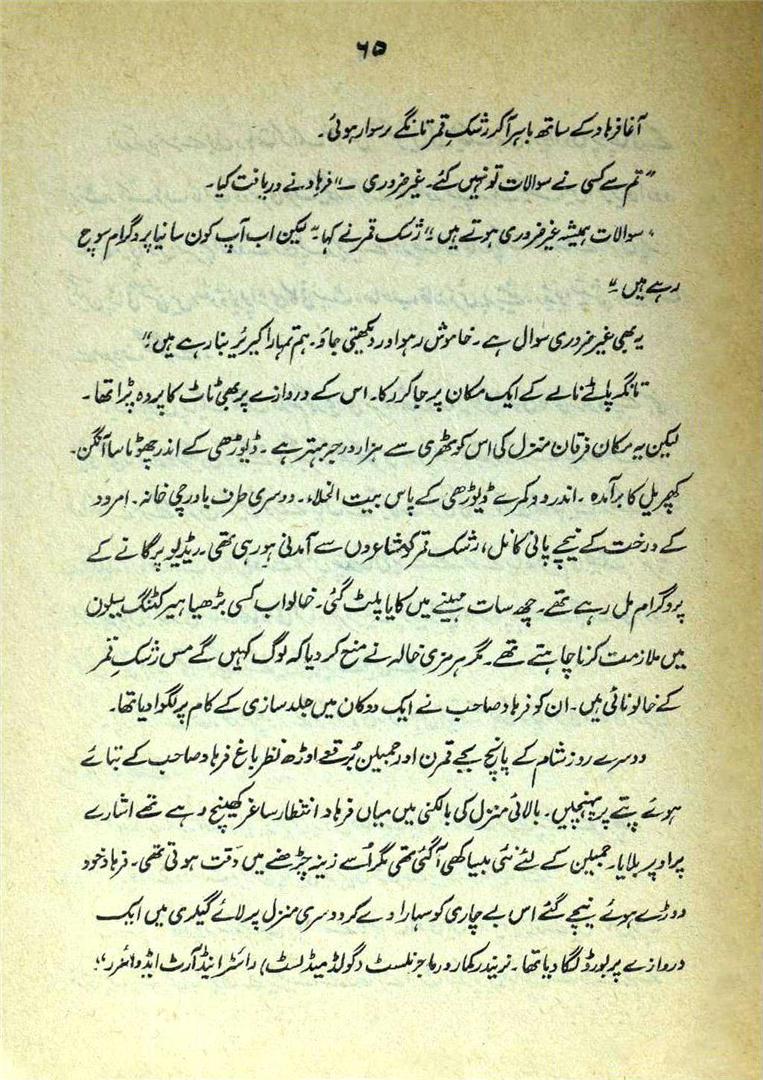 ۶۵
آغا فرہاد کے ساتھ باہر آ کر رشکِ قمر تانگے پر سوار ہوئی۔
”تم سے کسی نے سوالات تو نہیں کئے۔ غیر ضروری ــ“ فرہاد نے دریافت کیا۔
”سوالات ہمیشہ غیر ضروری ہوتے ہیں۔“ رشک قمر نے کہا۔ ”لیکن اب آپ کون سا نیا پروگرام سوچ
رہے ہیں۔“
یہ بھی غیر ضروری سوال ہے۔ خاموش رہو اور دیکھتی جاؤ۔ ہم تمہارا کیریئر بنا رہے ہیں“
تانگہ پاٹے نالے کے ایک مکان پر جا کر رکا۔ اس کے دروازے پر بھی ٹاٹ کا پردہ پڑا تھا۔
لیکن یہ مکان فرقان منزل کی اس کوٹھری سے ہزار درجہ بہتر ہے۔ ڈیوڑھی کے اندر چھوٹا سا آنگن۔
کھپریل کا برآمدہ۔ اندر دو کمرے ڈیوڑھی کے پاس بیت الخلاء۔ دوسری طرف باورچی خانہ۔ امرود
کے درخت کے نیچے پانی کا نل، رشک قمر کو مشاعروں سے آمدنی ہو رہی تھی۔ ریڈیو پر گانے کے
پروگرام مل رہے تھے۔ چھ سات مہینے میں کایا پلٹ گئی۔ خالو اب کسی بڑھیا ہیر کٹنگ سیلون
میں ملازمت کرنا چاہتے تھے۔ مگر ہرمزی خالہ نے منع کر دیا کہ لوگ کہیں گے مس رشکِ قمر
کے خالو نائی ہیں۔ ان کو فرہاد صاحب نے ایک دوکان میں جلد سازی کے کام پر لگوا دیا تھا۔
دوسرے روز شام کے پانچ بجے قمرن اور جمیلن بُرقعے اوڑھ نظر باغ فرہاد صاحب کے بتائے
ہوئے پتے پر پہنچیں۔ بالائی منزل کی بالکنی میں میاں فرہاد انتظار ساغر کھینچ رہے تھے اشارے
پر اوپر بلایا۔ جمیلن کے لئے نئی بیساکھی آ گئی تھی مگر اُسے زینہ چڑھنے میں دَقت ہوتی تھی۔ فرہاد خود
دوڑے ہوئے نیچے گئے اس بے چاری کو سہارا دے کر دوسری منزل پر لائے گیلری میں ایک
دروازے پر بورڈ لگا دیا تھا۔ نریندر کمار ورما جرنلسٹ (گولڈ میڈلسٹ) رائٹر اینڈ آرٹ ایڈوائزر“